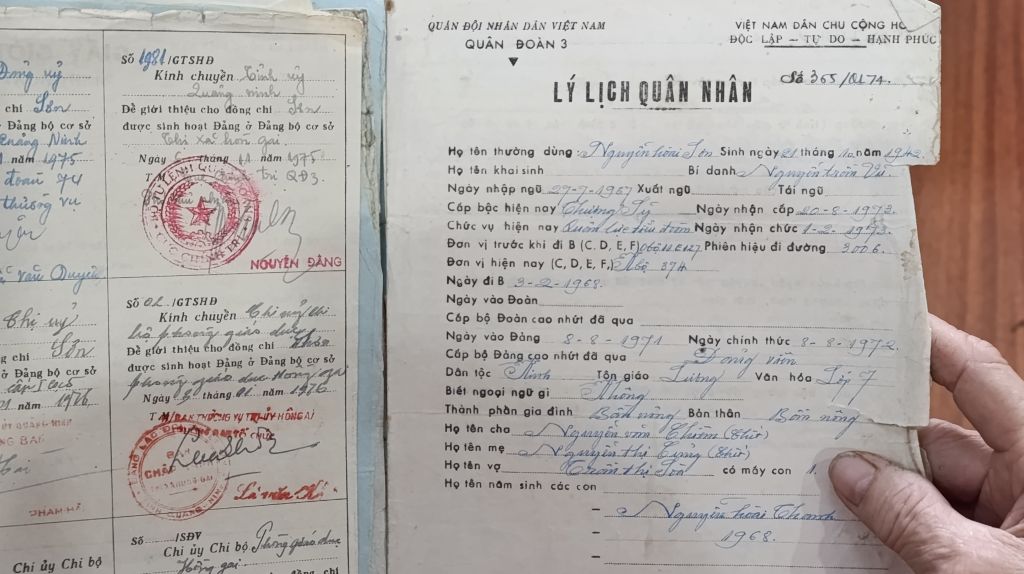 Đảng uỷ
chí Sơn
ở Đảng bộ cơ sở
Quảng Ninh
năm 1975
đoàn 74
thường vụ
Số 1981/GTSHĐ
Kính chuyển Tỉnh uỷ
Quảng ninh
Để giới thiệu cho đồng chí Sơn
được sinh hoạt Đảng ở Đảng bộ cơ sở
Thị xã hòn gai
Ngày 6 tháng 11 năm 1975
trị QĐ3
NGUYỄN ĐẢNG
văn Duyên
Thị uỷ
chí Sơn
ở Đảng bộ cơ sở
01 năm 1976
Số 02 /GTSHĐ
Kính chuyển Chi uỷ chi
bộ phòng giáo dục
Để giới thiệu cho đồng chí
được sinh hoạt Đảng ở Đảng bộ cơ sở
phòng giáo dục Hòng gai
Ngày tháng 01 năm 1976
T/M BAN THƯỜNG VỤ THỊ ỦY HỒNG GAI
Số /SĐV
Chi ủy Chi bộ Phòng giáo dục
Hồng gai
QUÂN ĐỘI NHÂN DÂN VIỆT NAM
QUÂN ĐOÀN 3
VIỆT NAM DÂN CHỦ CỘNG HÒ
ĐỘC LẬP – TỰ DO – HẠNH PHÚC
Số 365/QL74.
LÝ LỊCH QUÂN NHÂN
Họ tên thường dùng: Nguyễn hoài Sơn Sinh ngày 21 tháng 10 năm 1942.
Họ tên khai sinh Bí danh Nguyễn trần Vũ.
Ngày nhập ngũ 29-7-1967 Xuất ngũ Tái ngũ
Cấp bậc hiện nay Thượng sỹ Ngày nhận cấp 20-8-1973.
Chức vụ hiện nay Quân lực tiểu đoàn Ngày nhận chức 1-2-1973.
Đơn vị trước khi đi B (C, D, E, F) Phiên hiệu đi đường 3006.
Đơn vị hiện nay (C, D, E, F,) 374
Ngày đi B 3-2-1968.
Ngày vào Đoàn
Cấp bộ Đoàn cao nhứt đã qua
Ngày vào Đảng 8-8-1971 Ngày chính thức 8-8-1972.
Cấp bộ Đảng cao nhứt đã qua Đảng viên
Dân tộc Kinh Tôn giáo Lương Văn hóa Lớp 7
Biết ngoại ngữ gì Không
Thành phần gia đình Bần nông Bản thân Bần nông
Họ tên cha Nguyễn văn
Họ tên mẹ Nguyễn thị
Họ tên vợ Trần thị có mấy con 1.
Họ tên năm sinh các con
– Nguyễn hoài Thanh
– 1968.
–